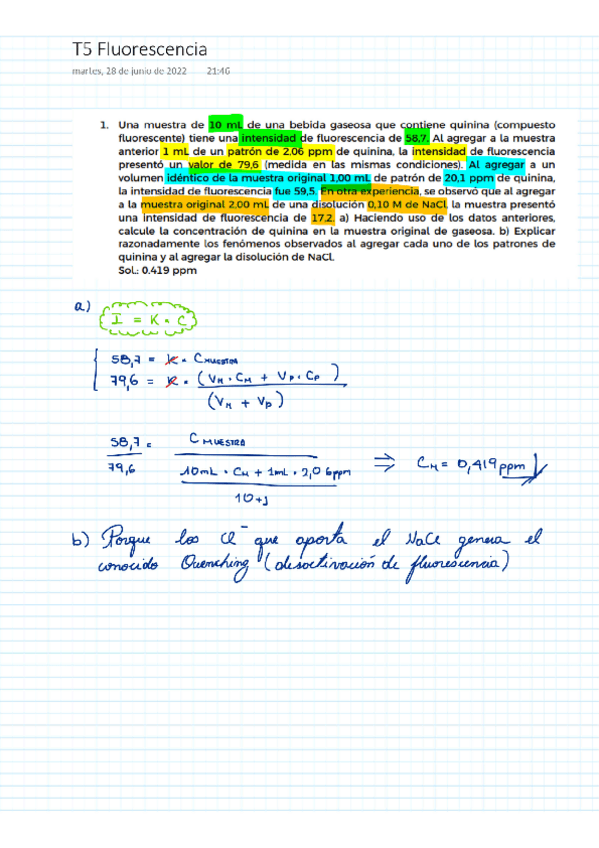 T5 Fluorescencia
martes, 28 de junio de 2022 21:46
1. Una muestra de 10 mL de una bebida gaseosa que contiene quinina (compuesto
fluorescente) tiene una intensidad de fluorescencia de 58,7. Al agregar a la muestra
anterior 1 mL de un patrón de 2,06 ppm de quinina, la intensidad de fluorescencia
presentó un valor de 79,6 (medida en las mismas condiciones). Al agregar a un
volumen idéntico de la muestra original 1,00 mL de patrón de 20,1 ppm de quinina,
la intensidad de fluorescencia fue 59,5. En otra experiencia, se observó que al agregar
a la muestra original 2,00 mL de una disolución 0,10 M de NaCl, la muestra presentó
una intensidad de fluorescencia de 17,2. a) Haciendo uso de los datos anteriores,
calcule la concentración de quinina en la muestra original de gaseosa. b) Explicar
razonadamente los fenómenos observados al agregar cada uno de los patrones de
quinina y al agregar la disolución de NaCl.
Sol.: 0.419 ppm
a)
I = K · C
58,7 = K · C MUESTRA
79,6 = K · (V_M · C_M + V_P · C_P)
(V_M + V_P)
58,7 = C MUESTRA
79,6 10mL · C_M + 1mL · 2,06ppm ⇒ C_M = 0,419 ppm
10+1
b) Porque los Cl⁻ que aporta el NaCl genera el
conocido Quenching (desactivación de fluorescencia)